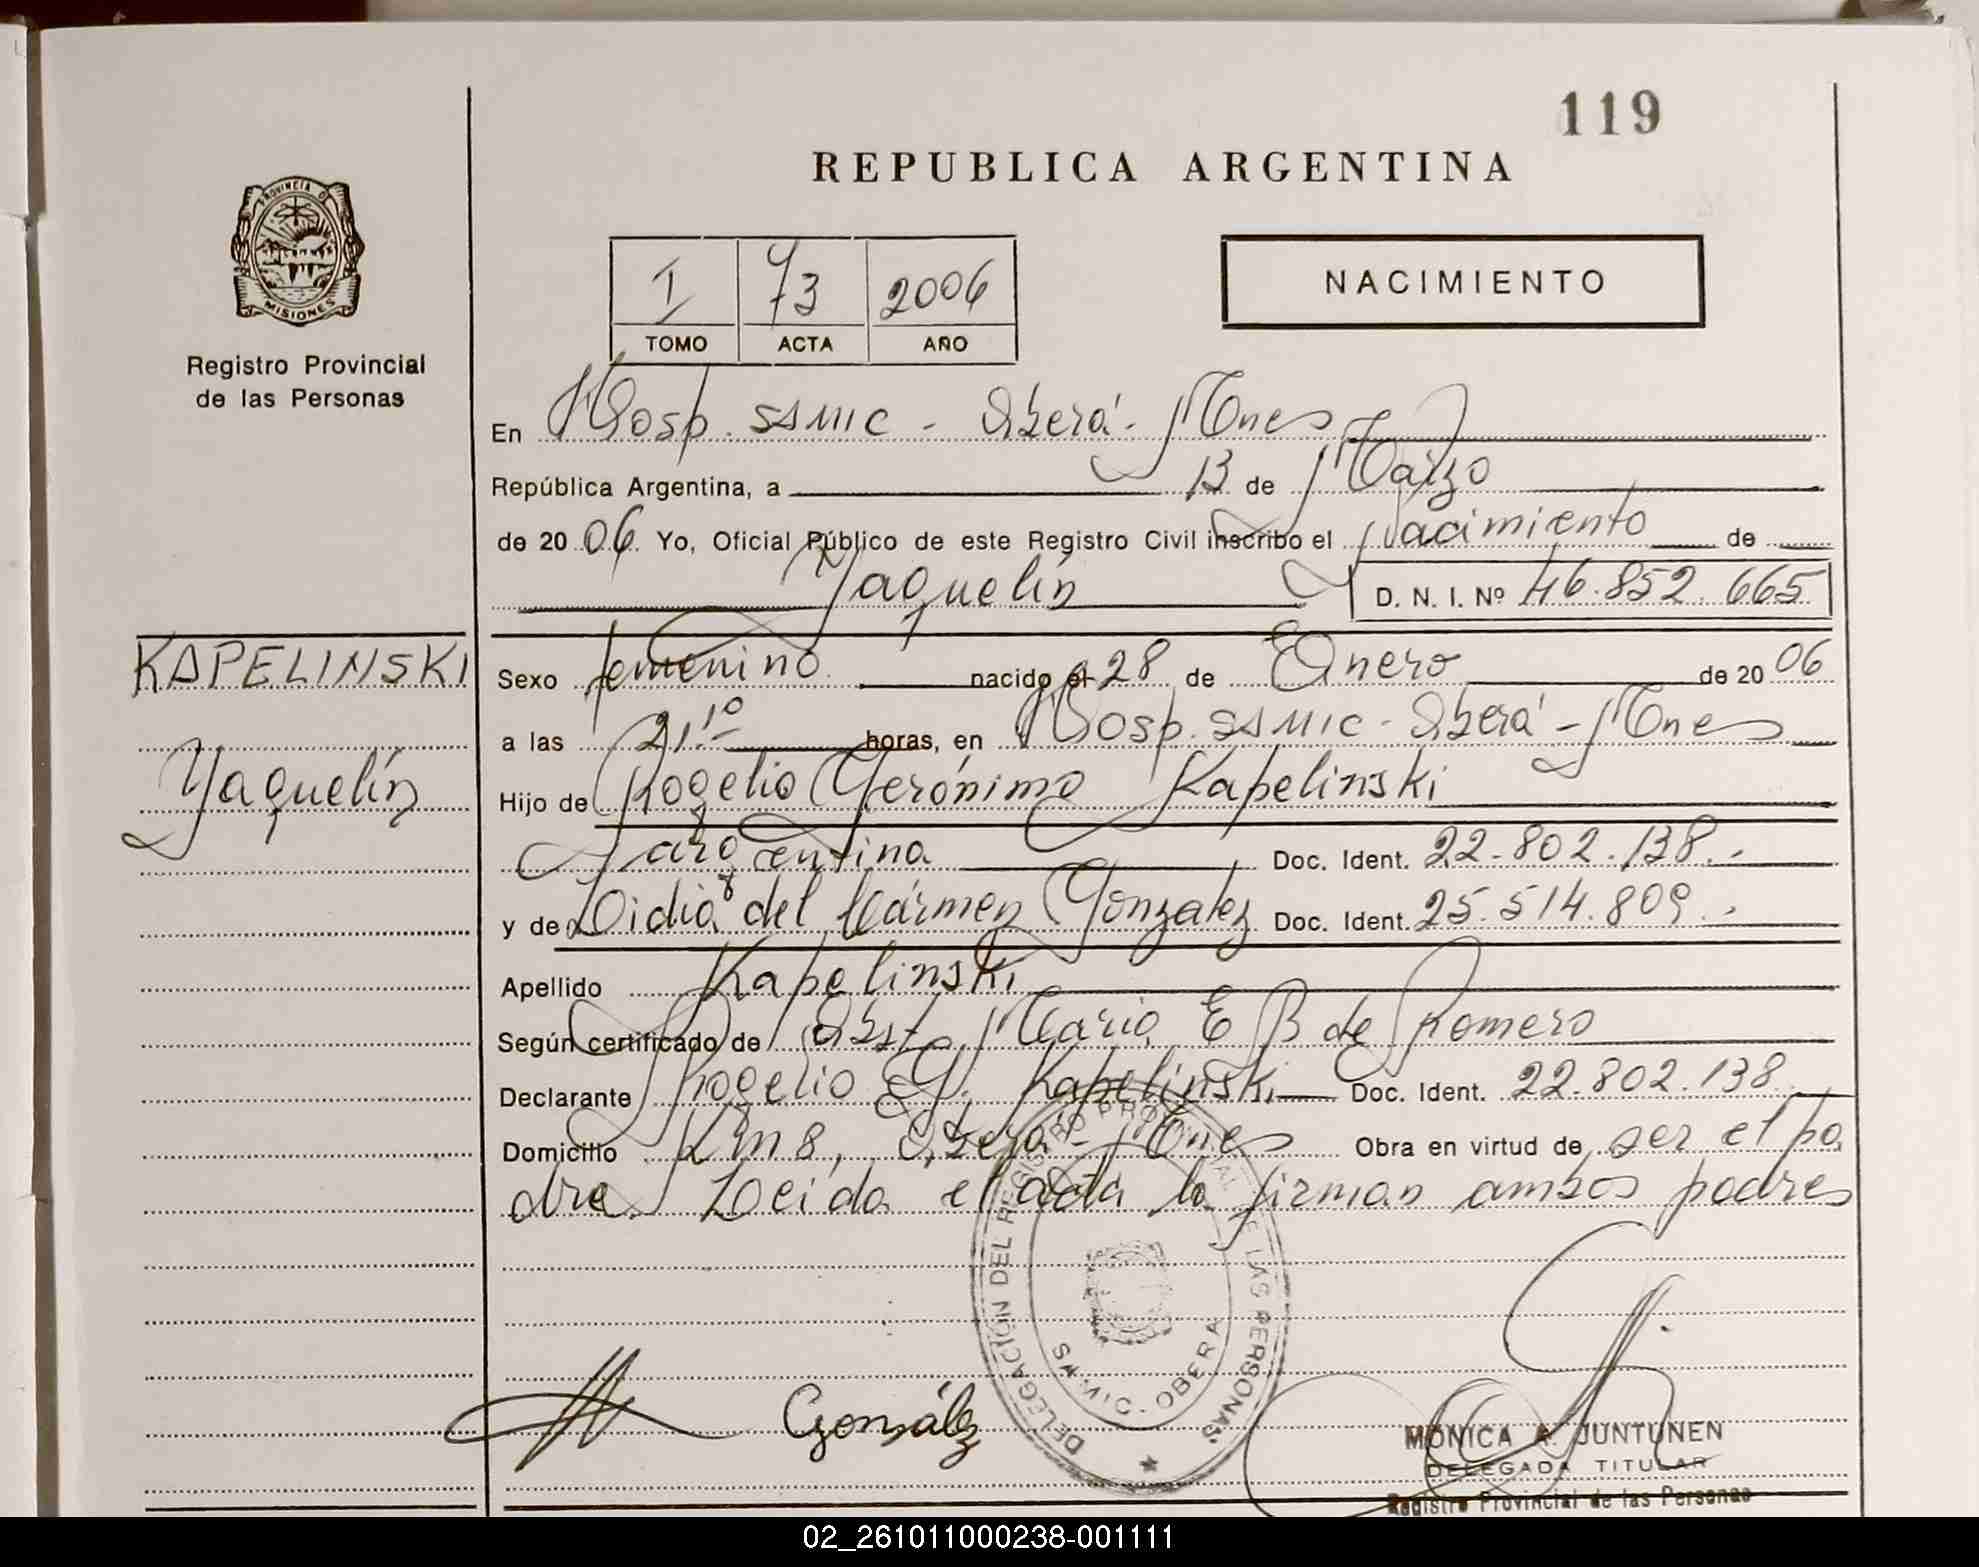 119
REPUBLICA ARGENTINA
PROVINCIA D
MISIONES
Registro Provincial
de las Personas
I 73 2006
TOMO ACTA AÑO
NACIMIENTO
En Hosp. SAMIC - Oberá - Mnes
República Argentina, a 13 de Marzo
de 2006 Yo, Oficial Público de este Registro Civil inscribo el Nacimiento de
Yaquelín D. N. I. Nº 46.852.665
KAPELINSKI
Yaquelín
Sexo femenino nacido el 28 de Enero de 2006
a las 21,10 horas, en Hosp. SAMIC - Oberá - Mnes
Hijo de Rogelio Gerónimo Kapelinski
argentina Doc. Ident. 22.802.138.-
y de Lidia del Cármen Gonzalez Doc. Ident. 25.514.809.-
Apellido Kapelinski
Según certificado de Obst. María E B de Romero
Declarante Rogelio G. Kapelinski Doc. Ident. 22.802.138
Domicilio Km 8, Oberá - Mnes Obra en virtud de ser el pa
dre. Leída el acta la firman ambos padres
DELEGACIÓN DEL REGISTRO PROVINCIAL DE LAS PERSONAS
OBERA
González
MONICA A. JUNTUNEN
DELEGADA TITULAR
Registro Provincial de las Personas
02_261011000238-001111